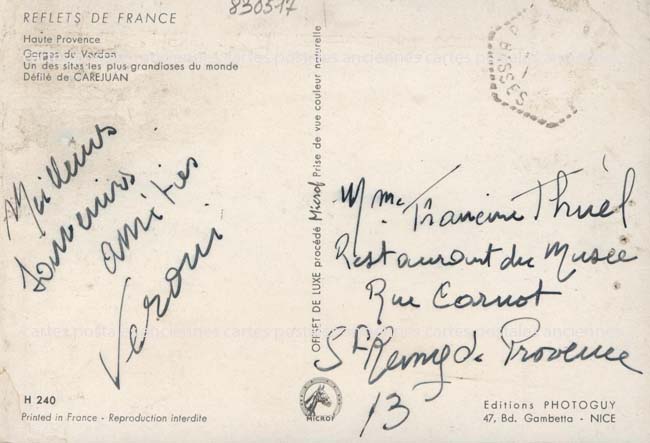 830517
REFLETS DE FRANCE
Haute Provence
Gorges du Verdon
Un des sites les plus grandioses du monde
Défilé de CAREJUAN
Meilleurs
souvenirs
amitiés
H 240
Printed in France - Reproduction interdite
OFFSET DE LUXE procédé Microf Prise de vue couleur naturelle
MICROF
P
BASSES
Mme Francine Thuel
Restaurant du Musée
Rue Carnot
St Remy de Provence
13
Editions PHOTOGUY
47, Bd. Gambetta - NICE
cartes postales anciennes cartes postales anciennes cartes postales anciennes
cartes postales anciennes cartes postales anciennes cartes postales anciennes